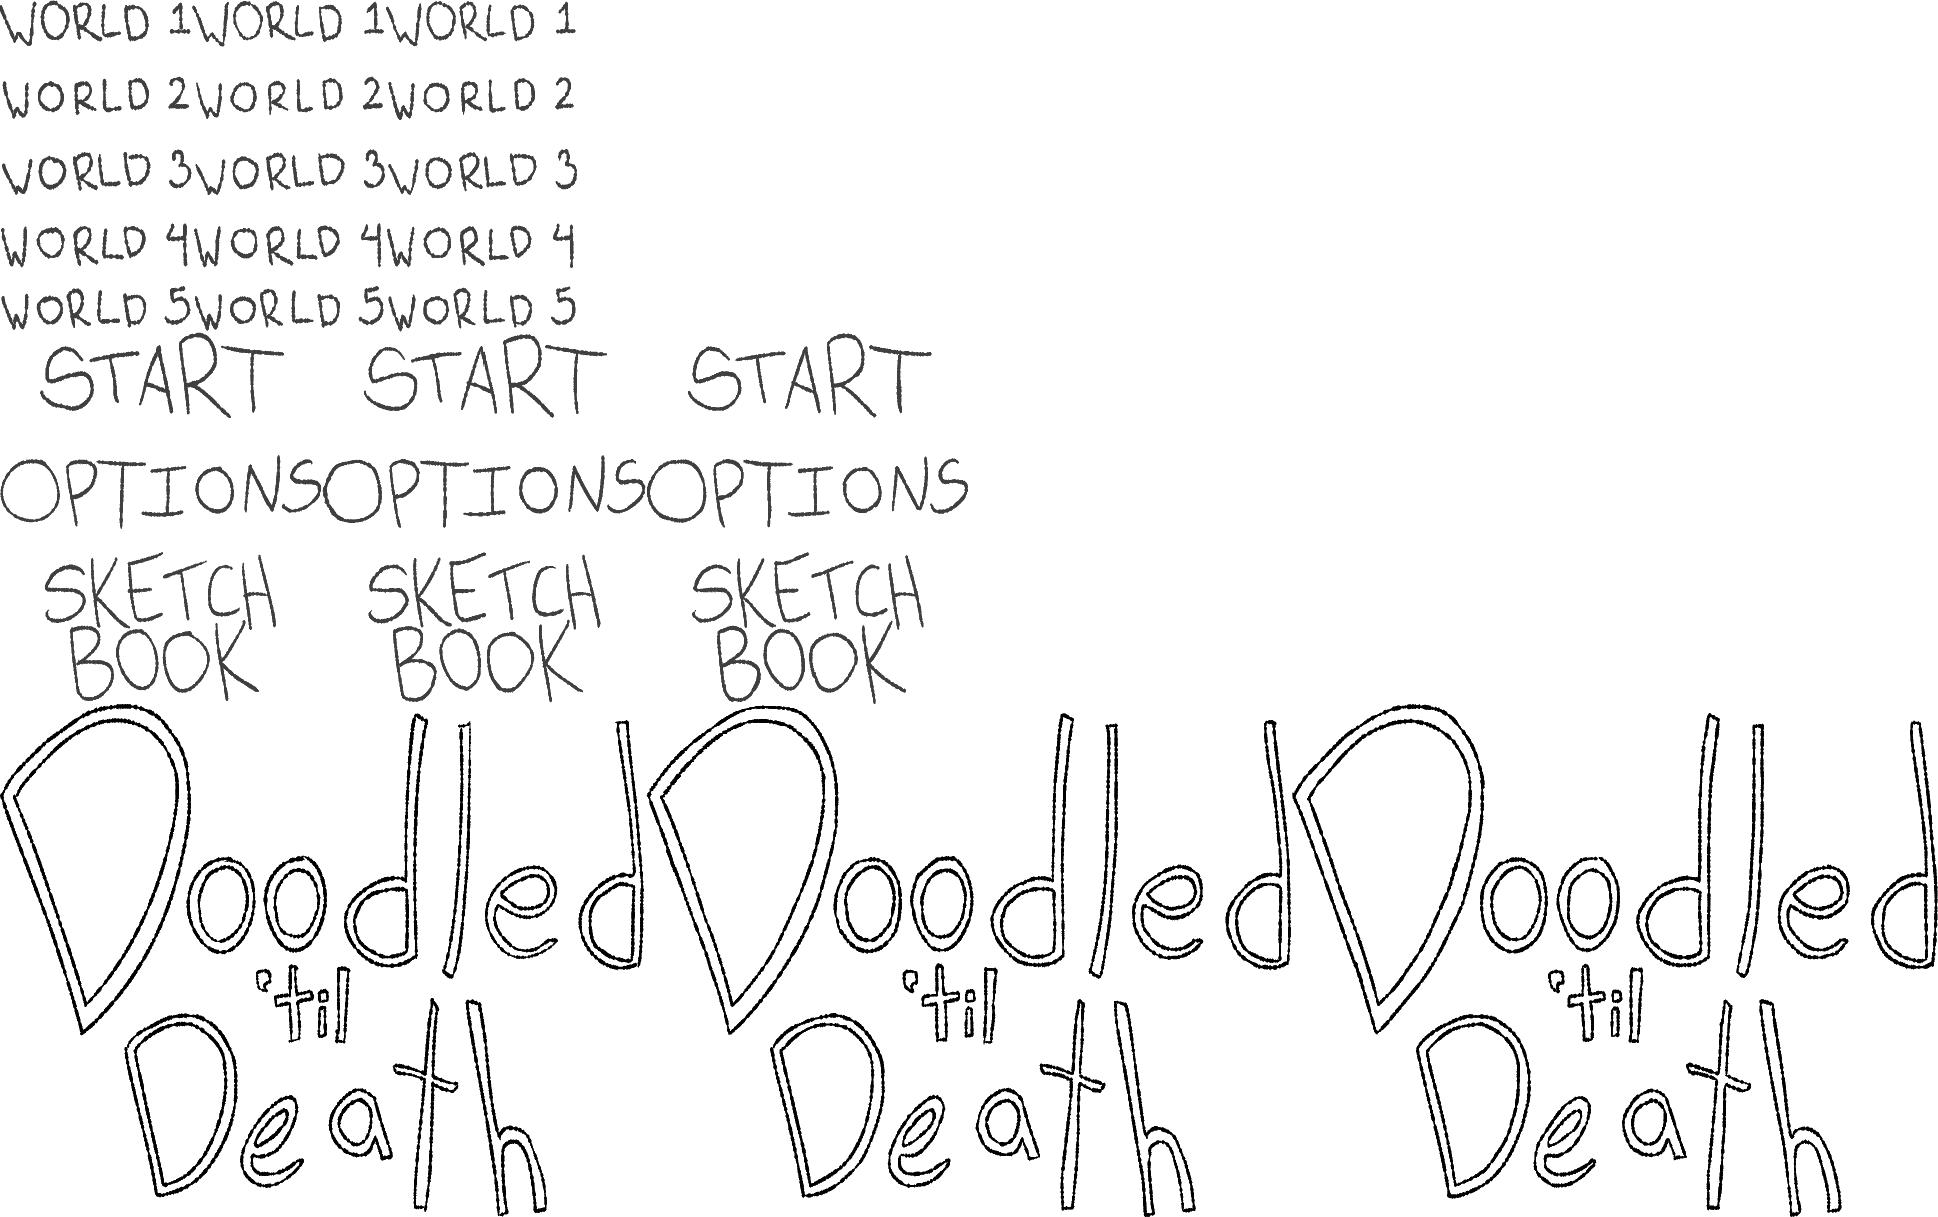 WORLD 1WORLD 1WORLD 1
WORLD 2WORLD 2WORLD 2
WORLD 3WORLD 3WORLD 3
WORLD 4WORLD 4WORLD 4
WORLD 5WORLD 5WORLD 5
START START START
OPTIONSOPTIONSOPTIONS
SKETCH SKETCH SKETCH
BOOK BOOK BOOK
Doodled Doodled Doodled
'til 'til 'til
Death Death Death